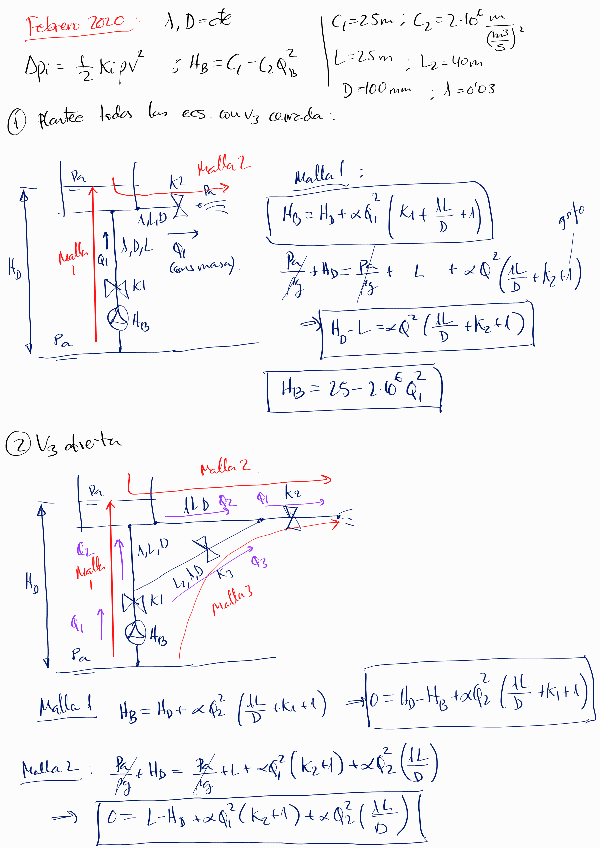 Febrero 2020 λ, D = cte
C₁ = 25m ; C₂ = 2·10⁶ m/(m³/s)²
Δpi = 1/2 Ki ρv² ; H_B = C₁ - C₂Q_B²
L = 25m ; L₂ = 40m
D = 100mm ; λ = 0'03
① Plantee todas las ecs con V₃ cerrada:
Malla 2
Pa
K2
Pa
λ, L, D
Malla 1
Q₁
λ, D, L
Q₁
(cons masa).
H_D
K1
H_B
Pa
Malla 1 :
H_B = H_D + αQ₁² (K₁ + λL/D + 1)
gsto
Pa/ρg + H_D = Pa/ρg + L + αQ² (λL/D + K₂ + 1)
⇒ H_D - L = αQ² (λL/D + K₂ + 1)
H_B = 25 - 2·10⁶ Q₁²
② V₃ abierta
Malla 2
Pa
λLD Q₂
Q₁ K2
Q₂
λ, L, D
Malla 1
H_D
L₂, λD
K3
Q₃
K1
Malla 3
Q₁
H_B
Pa
Malla 1 H_B = H_D + αQ₂² (λL/D + K₁ + 1) ⇒ 0 = H_D - H_B + αQ₂² (λL/D + K₁ + 1)
Malla 2 : Pa/ρg + H_D = Pa/ρg + L + αQ₁² (K₂ + 1) + αQ₂² (λL/D)
⇒ 0 = L - H_D + αQ₁² (K₂ + 1) + αQ₂² (λL/D)